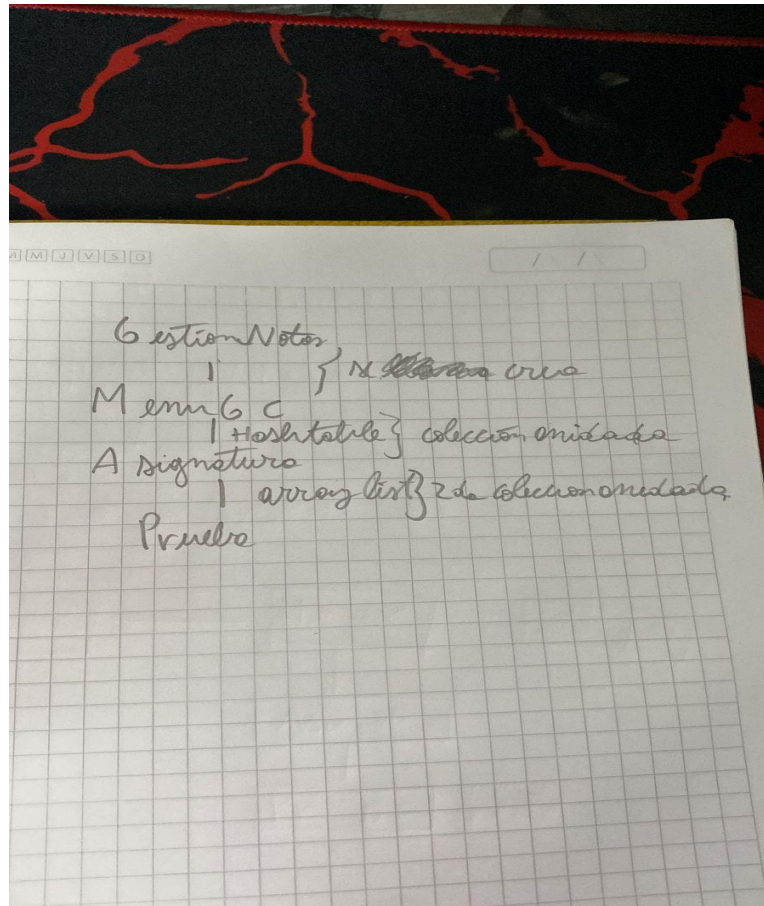 M J V S D
/ /
GestionNotas
| } se crea
MenuGC
| Hashtable } colección anidada
Asignatura
| array list } 2da coleccion anidada
Prueba